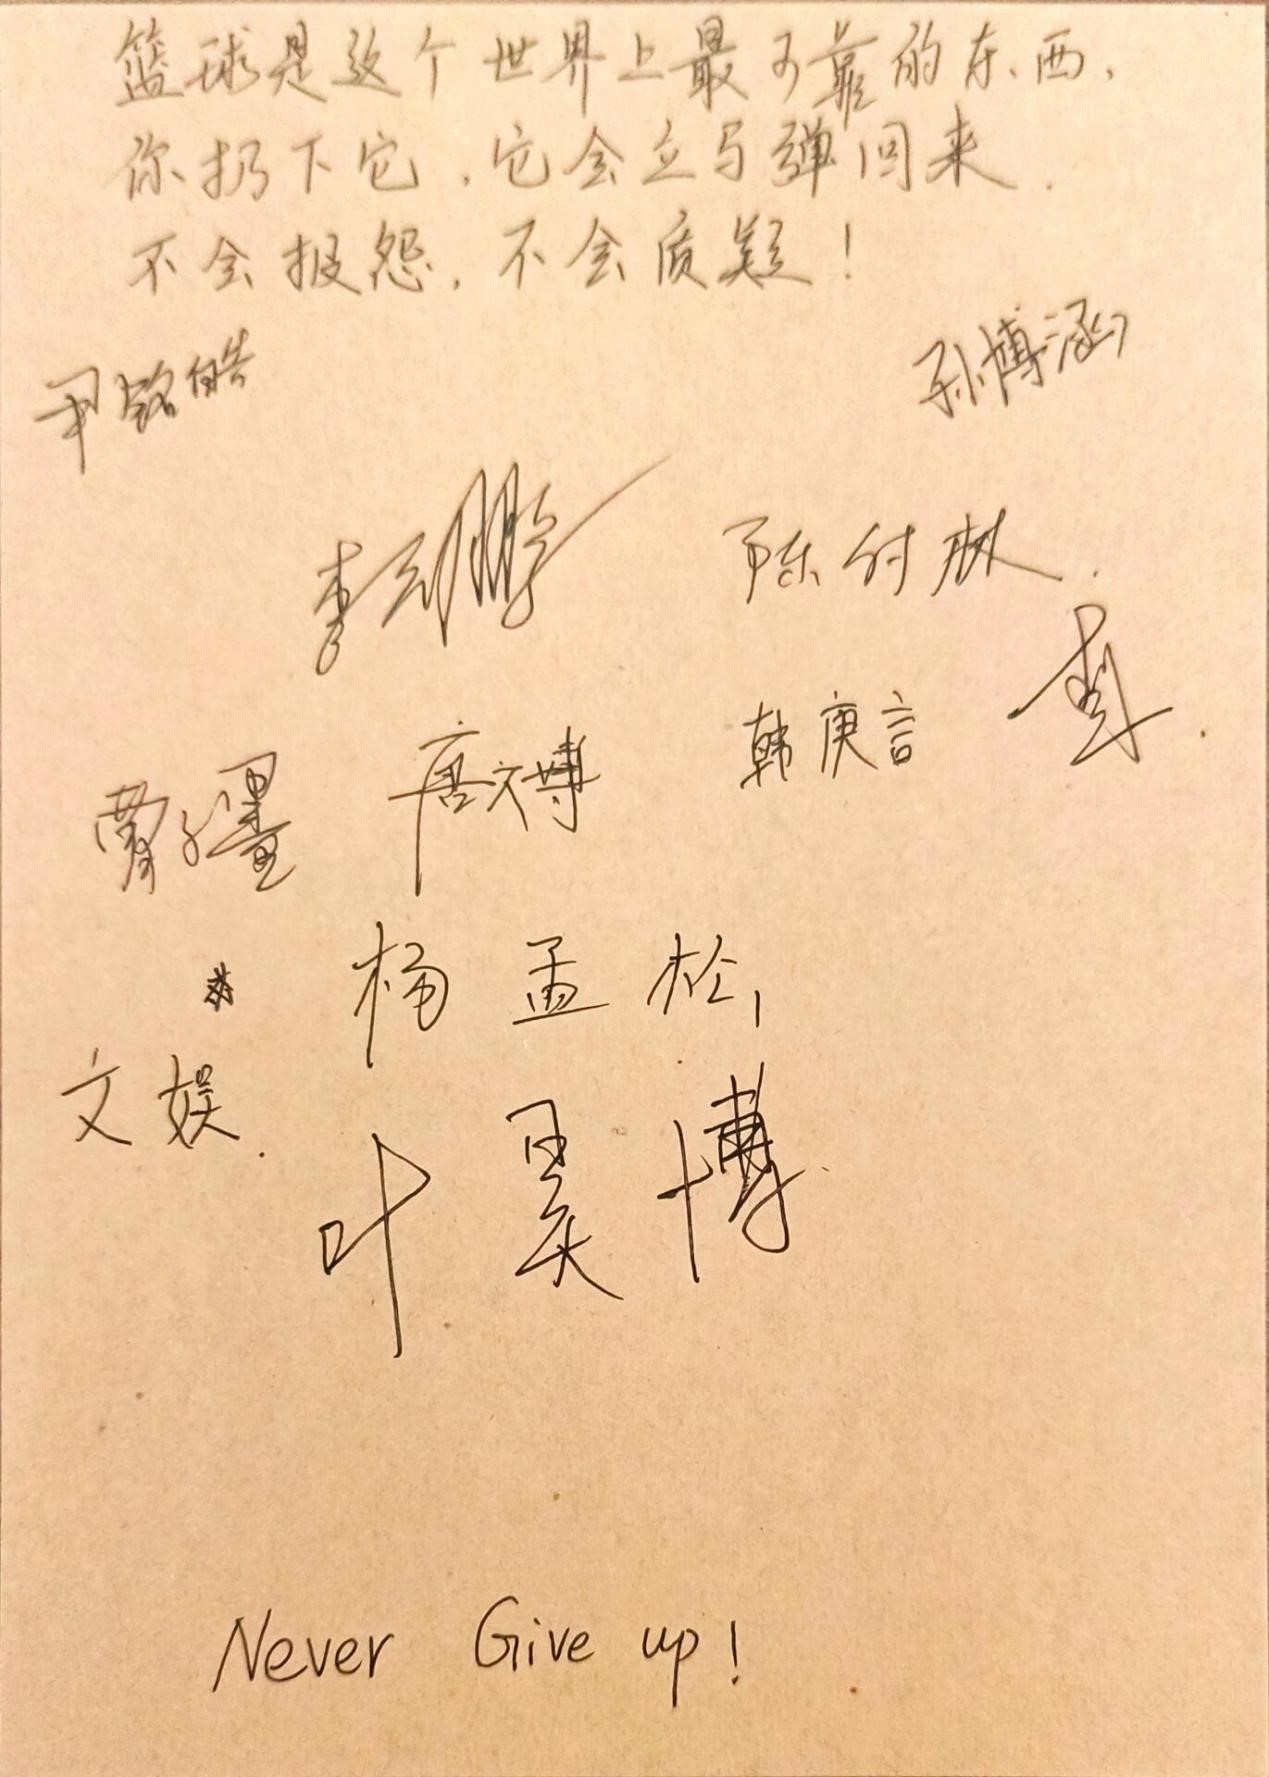 篮球是这个世界上最可靠的东西，
你扔下它，它会立马弹回来．
不会报怨，不会质疑！
尹铭皓 孙博涵
李云鹏 陈付林
唐文博 韩庚言
杨孟松
文娱
叶昊博
Never Give up!